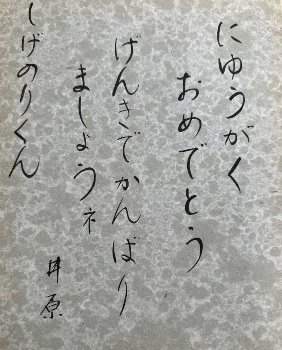 にゅうがく
おめでとう
げんきでがんばり
ましょうネ
しげのりくん
井原